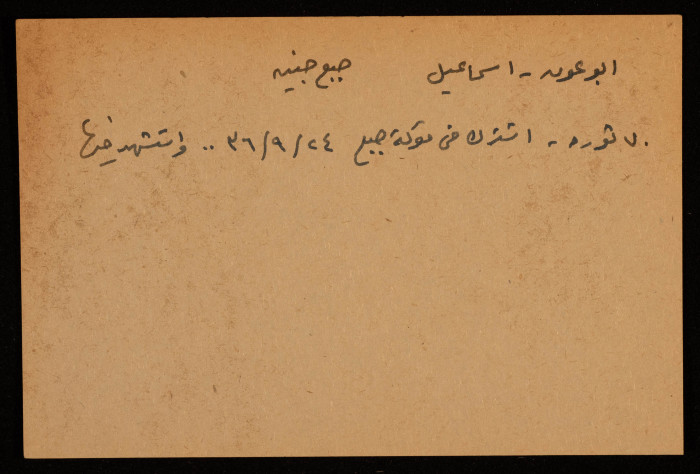 ابو عون - اسماعيل جبع جنين
٧٠ ثوره - اشترك في معركة جبع ٢٤/٩/٣٦ .. واستشهد فيها